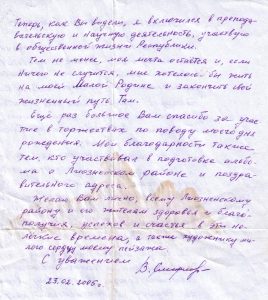 Теперь, как Вы видели, я включился в препода-
вательскую и научную деятельность, участвую
в общественной жизни Республики.
Тем не менее, моя мечта остаётся и, если
ничего не случится, мне хотелось бы жить
на моей Малой Родине и закончить свой
жизненный путь там.
Ещё раз большое Вам спасибо за учас-
тие в торжествах по поводу моего дня
рождения. Мои благодарности также
тем, кто участвовал в подготовке альбо-
ма о Лиозненском районе и поздра-
вительного адреса.
Желаю Вам лично, всему Лиозненскому
району и его жителям здоровья и благо-
получия, успехов и счастья в эти не-
лёгкие времена, а также художнику ми-
лого сердцу моему пейзажа
С уважением
23.02.2006г.